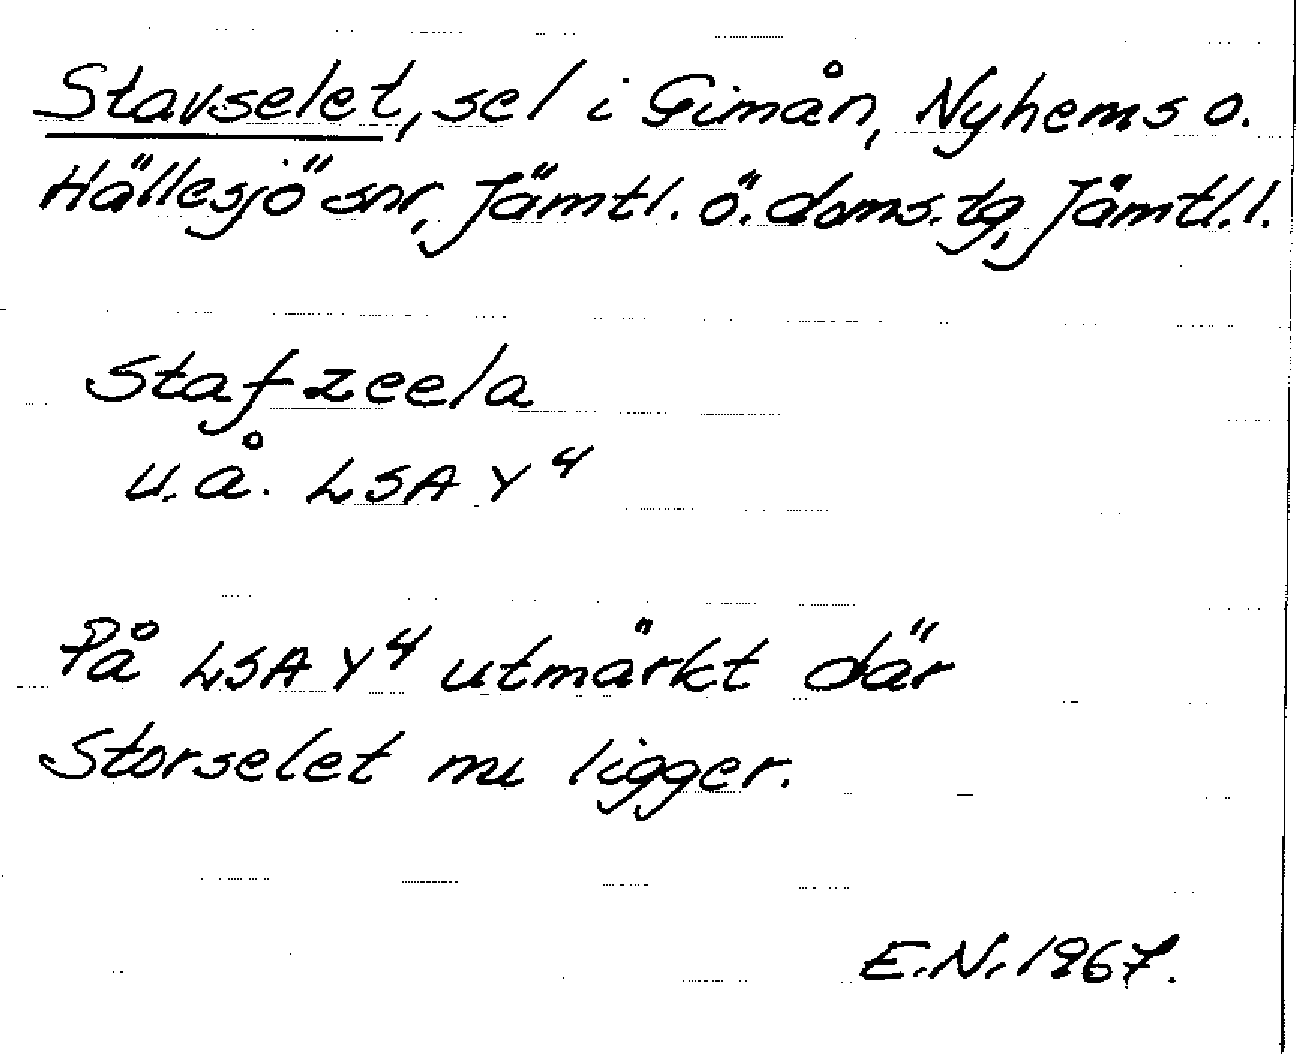 Stavselet, sel i Gimån, Nyhems o.
Hällesjö snr, Jämtl. ö. doms. tg, Jämtl. l.
Stafzeela
u.å. LSA Y 4
På LSA Y 4 utmärkt där
Storselet nu ligger.
E.N. 1967.